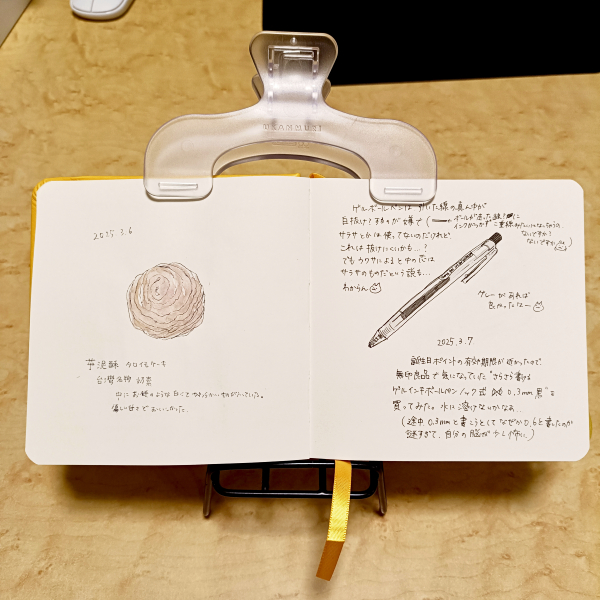 2025.3.6
芋泥酥 タロイモケーキ
台灣名物 初菜
中にお餅のような白くてやわらかいものが入っていた。
優しい甘さでおいしかった。
ゲルボールペンは 引いた線の真ん中が
白抜け!するのが嫌で
ボールが通った跡!に
インクがつかず 二重線みたいになっちゃうの、
ないですか?
ないですか
サラサとかは使ってないのだけれど、
これは抜けにくいかも…?
でもウワサによると中の芯は
サラサのものだという説も…
わからん
グレーがあれば
良かったなー
2025.3.7
誕生日ポイントの有効期限が近かったので、
無印良品で気になっていた"さらさら書ける
ゲルインキボールペン ノック式 0.3mm 黒"を
買ってみた。水に溶けないかなぁ…
(途中 0.3mmと書こうとしてなぜか0.6と書いたのが
謎すぎて、自分の脳が少し怖い。)